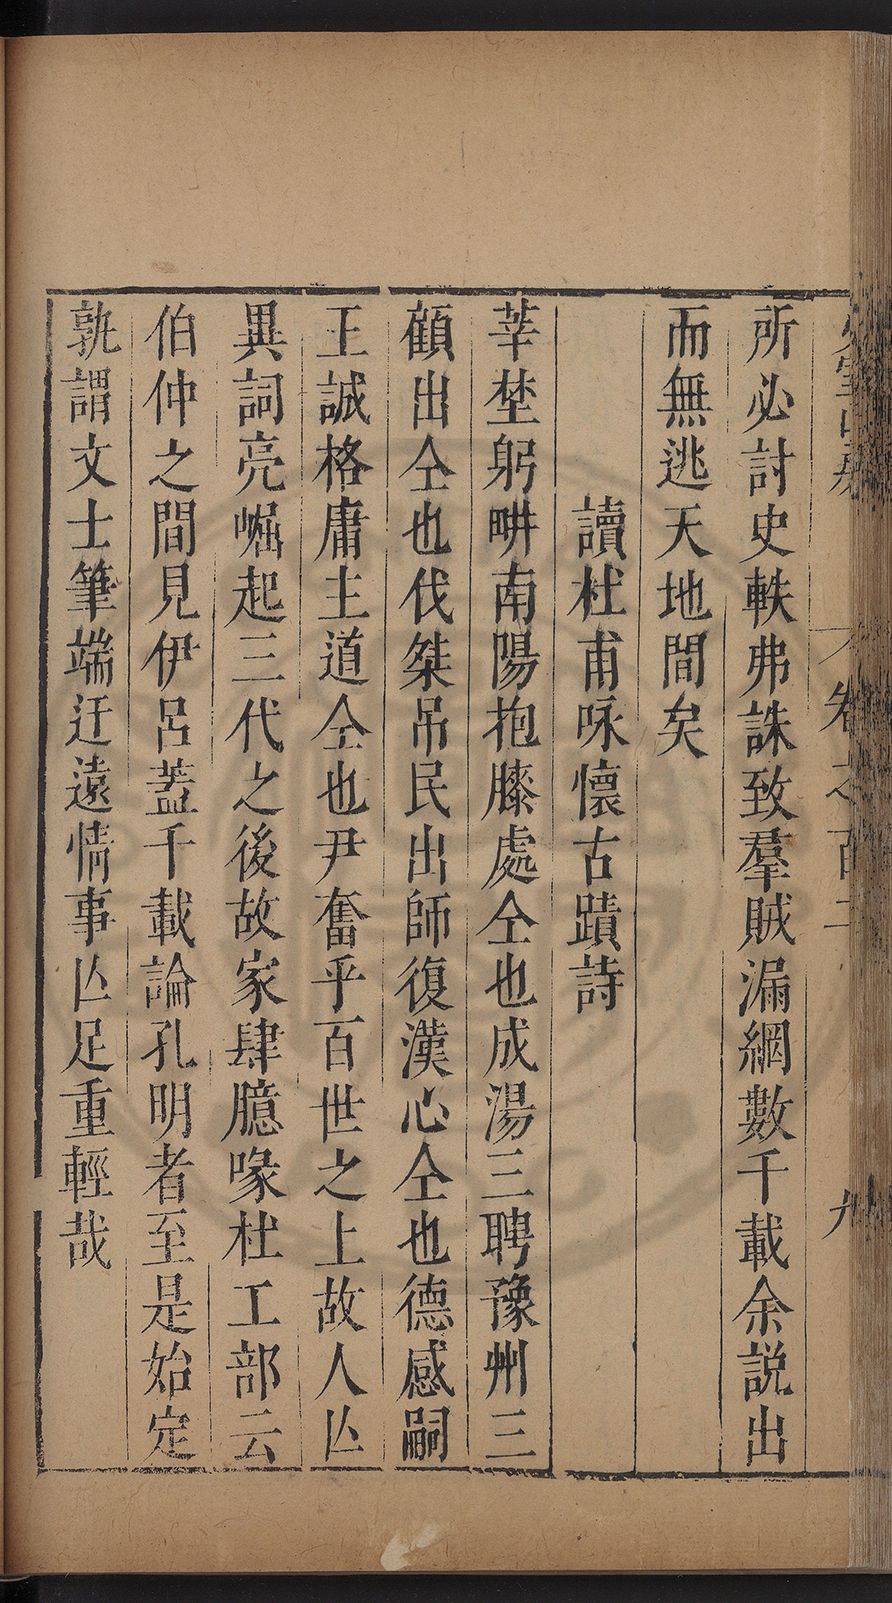 卷之百二
九
所必討史軼弗誅致羣賊漏網數千載余説出
而無逃天地間矣
讀杜甫咏懷古蹟詩
莘埜躬畊南陽抱膝處仝也成湯三聘豫州三
顧出仝也伐桀吊民出師復漢心仝也德感嗣
王誠格庸主道仝也尹奮乎百世之上故人亾
異詞亮崛起三代之後故家肆臆喙杜工部云
伯仲之間見伊呂蓋千載論孔明者至是始定
孰謂文士筆端迂遠情事亾足重輕哉